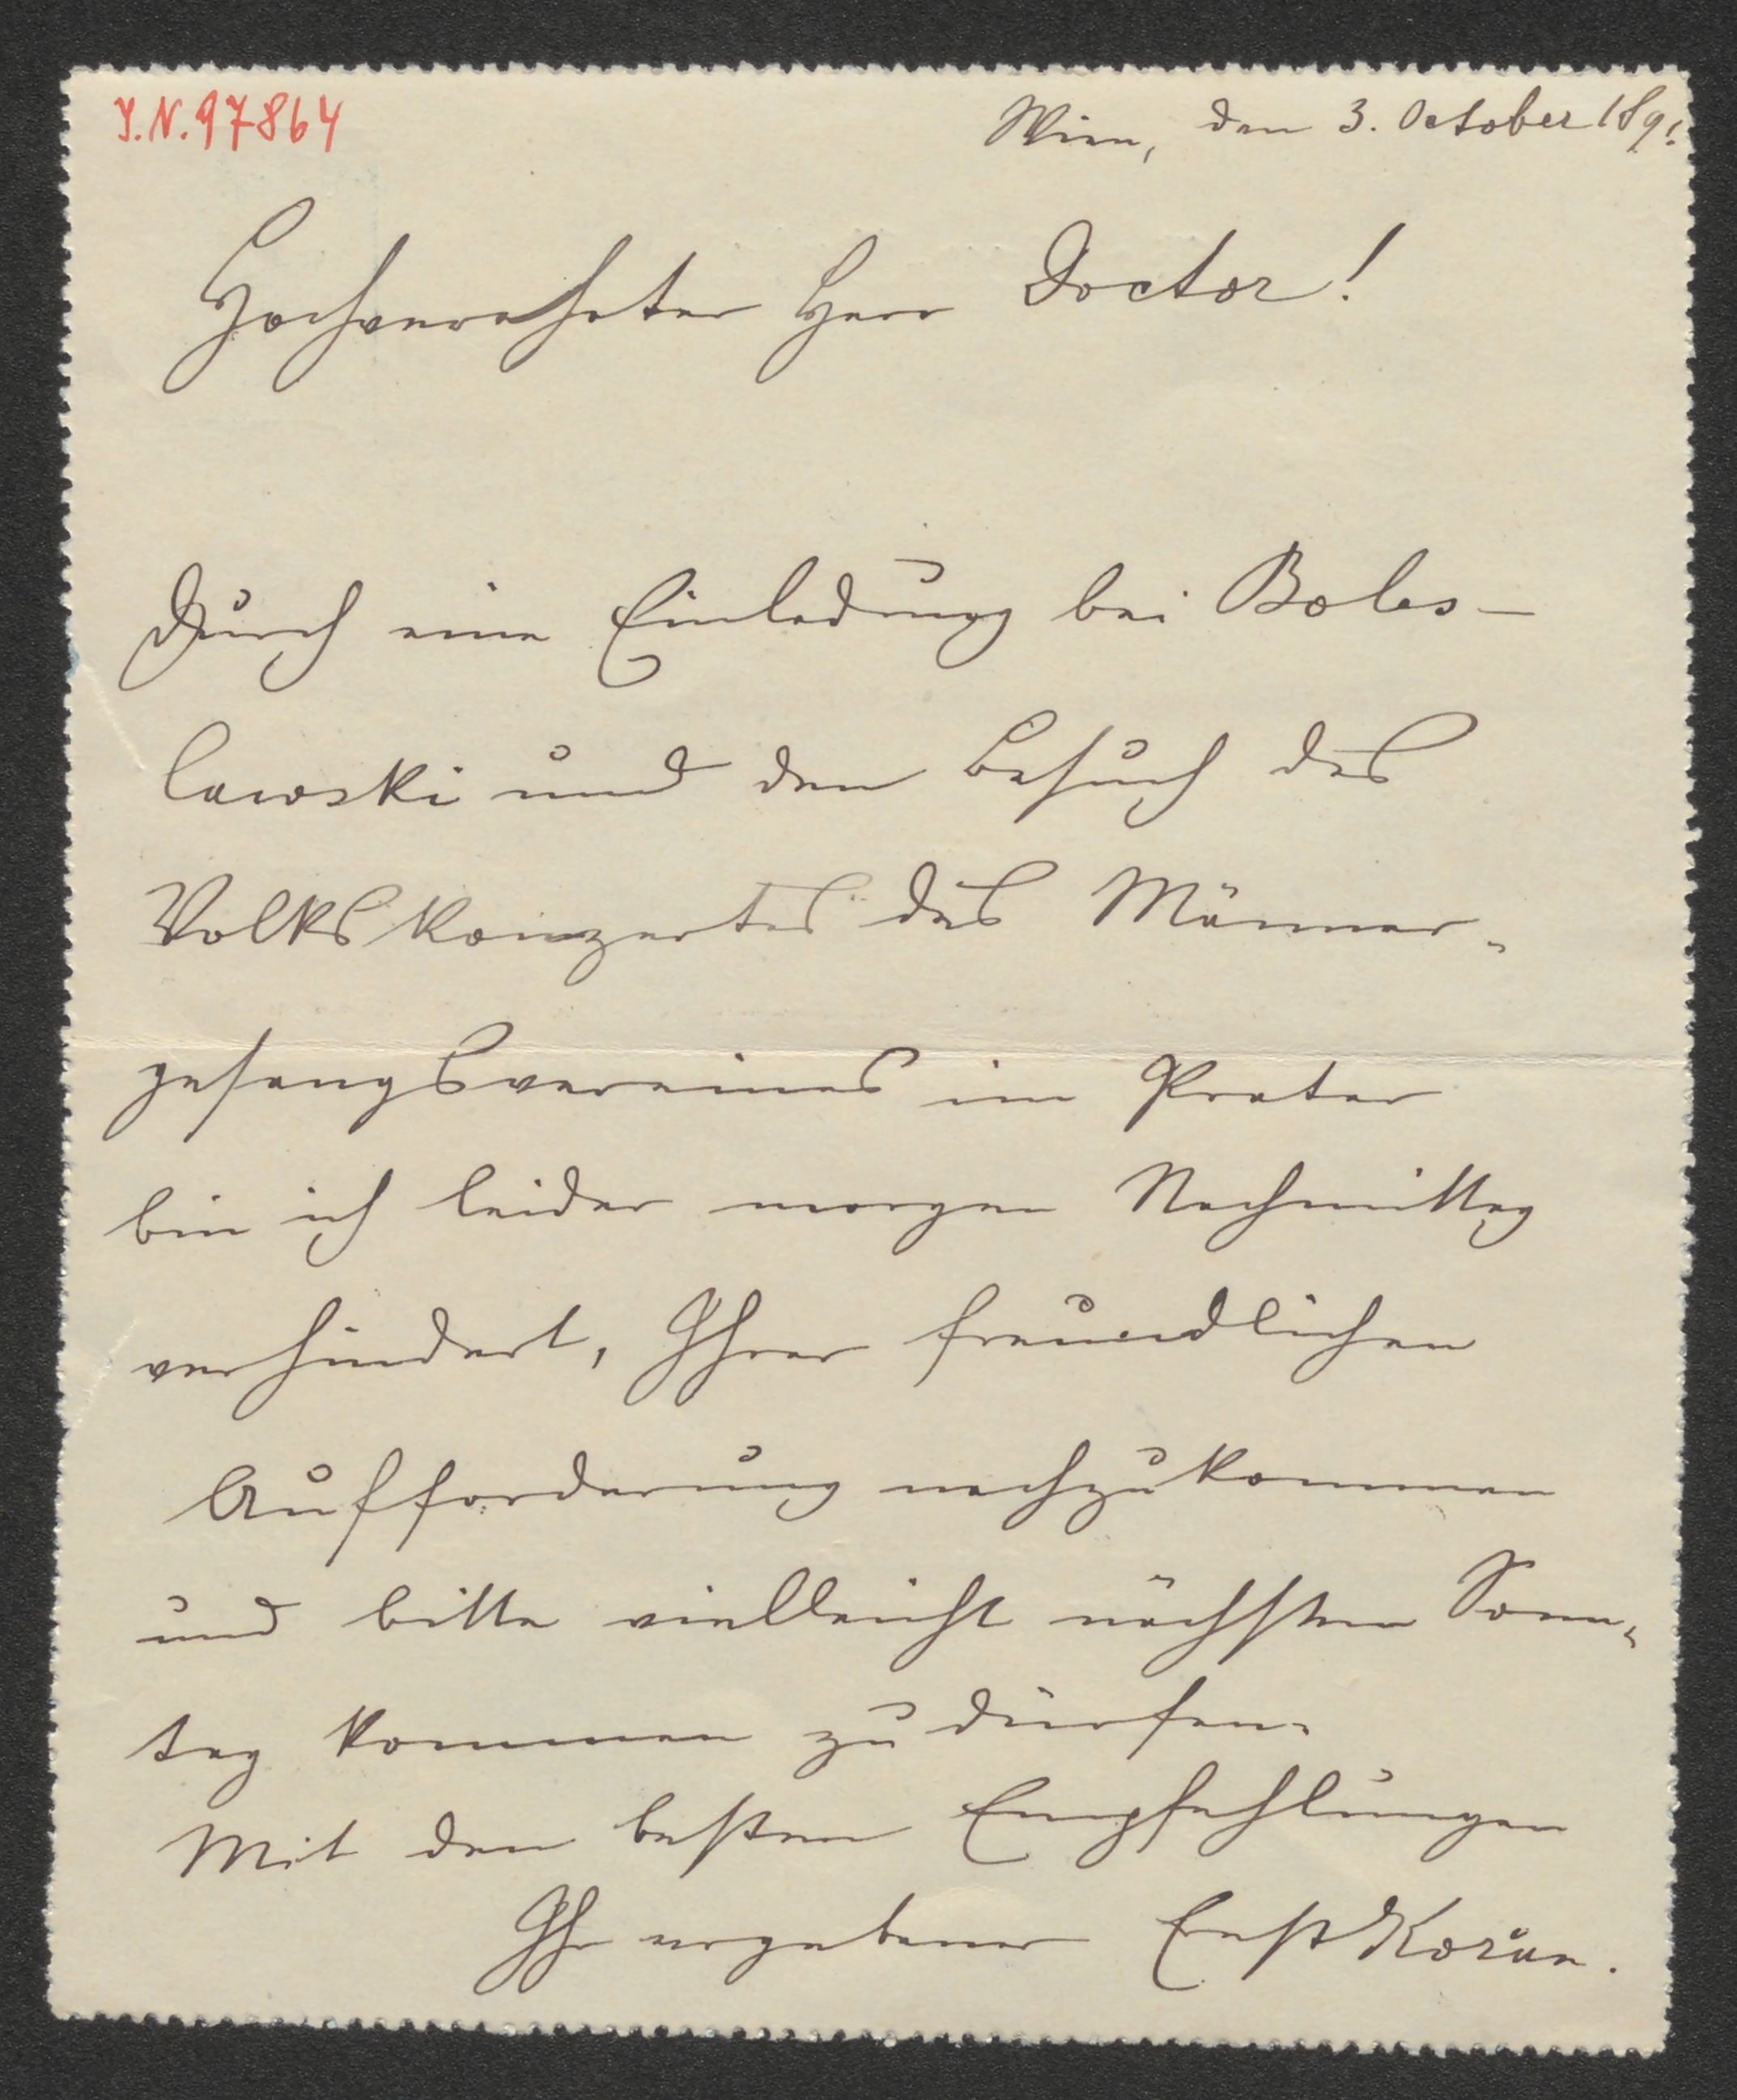 I.N. 97864
Wien, den 3. October 189
Hochverehrter Herr Doctor!
Durch eine Einladung bei Boles-
lawski und den Besuch des
Volkskonzertes des Männer-
gesangsvereines im Prater
bin ich leider morgen Nachmittag
verhindert, Ihrer freundlichen
Aufforderung nachzukommen
und bitte vielleicht nächsten Sonn-
tag kommen zu dürfen.
Mit den besten Empfehlungen
Ihr ergebener Ernst